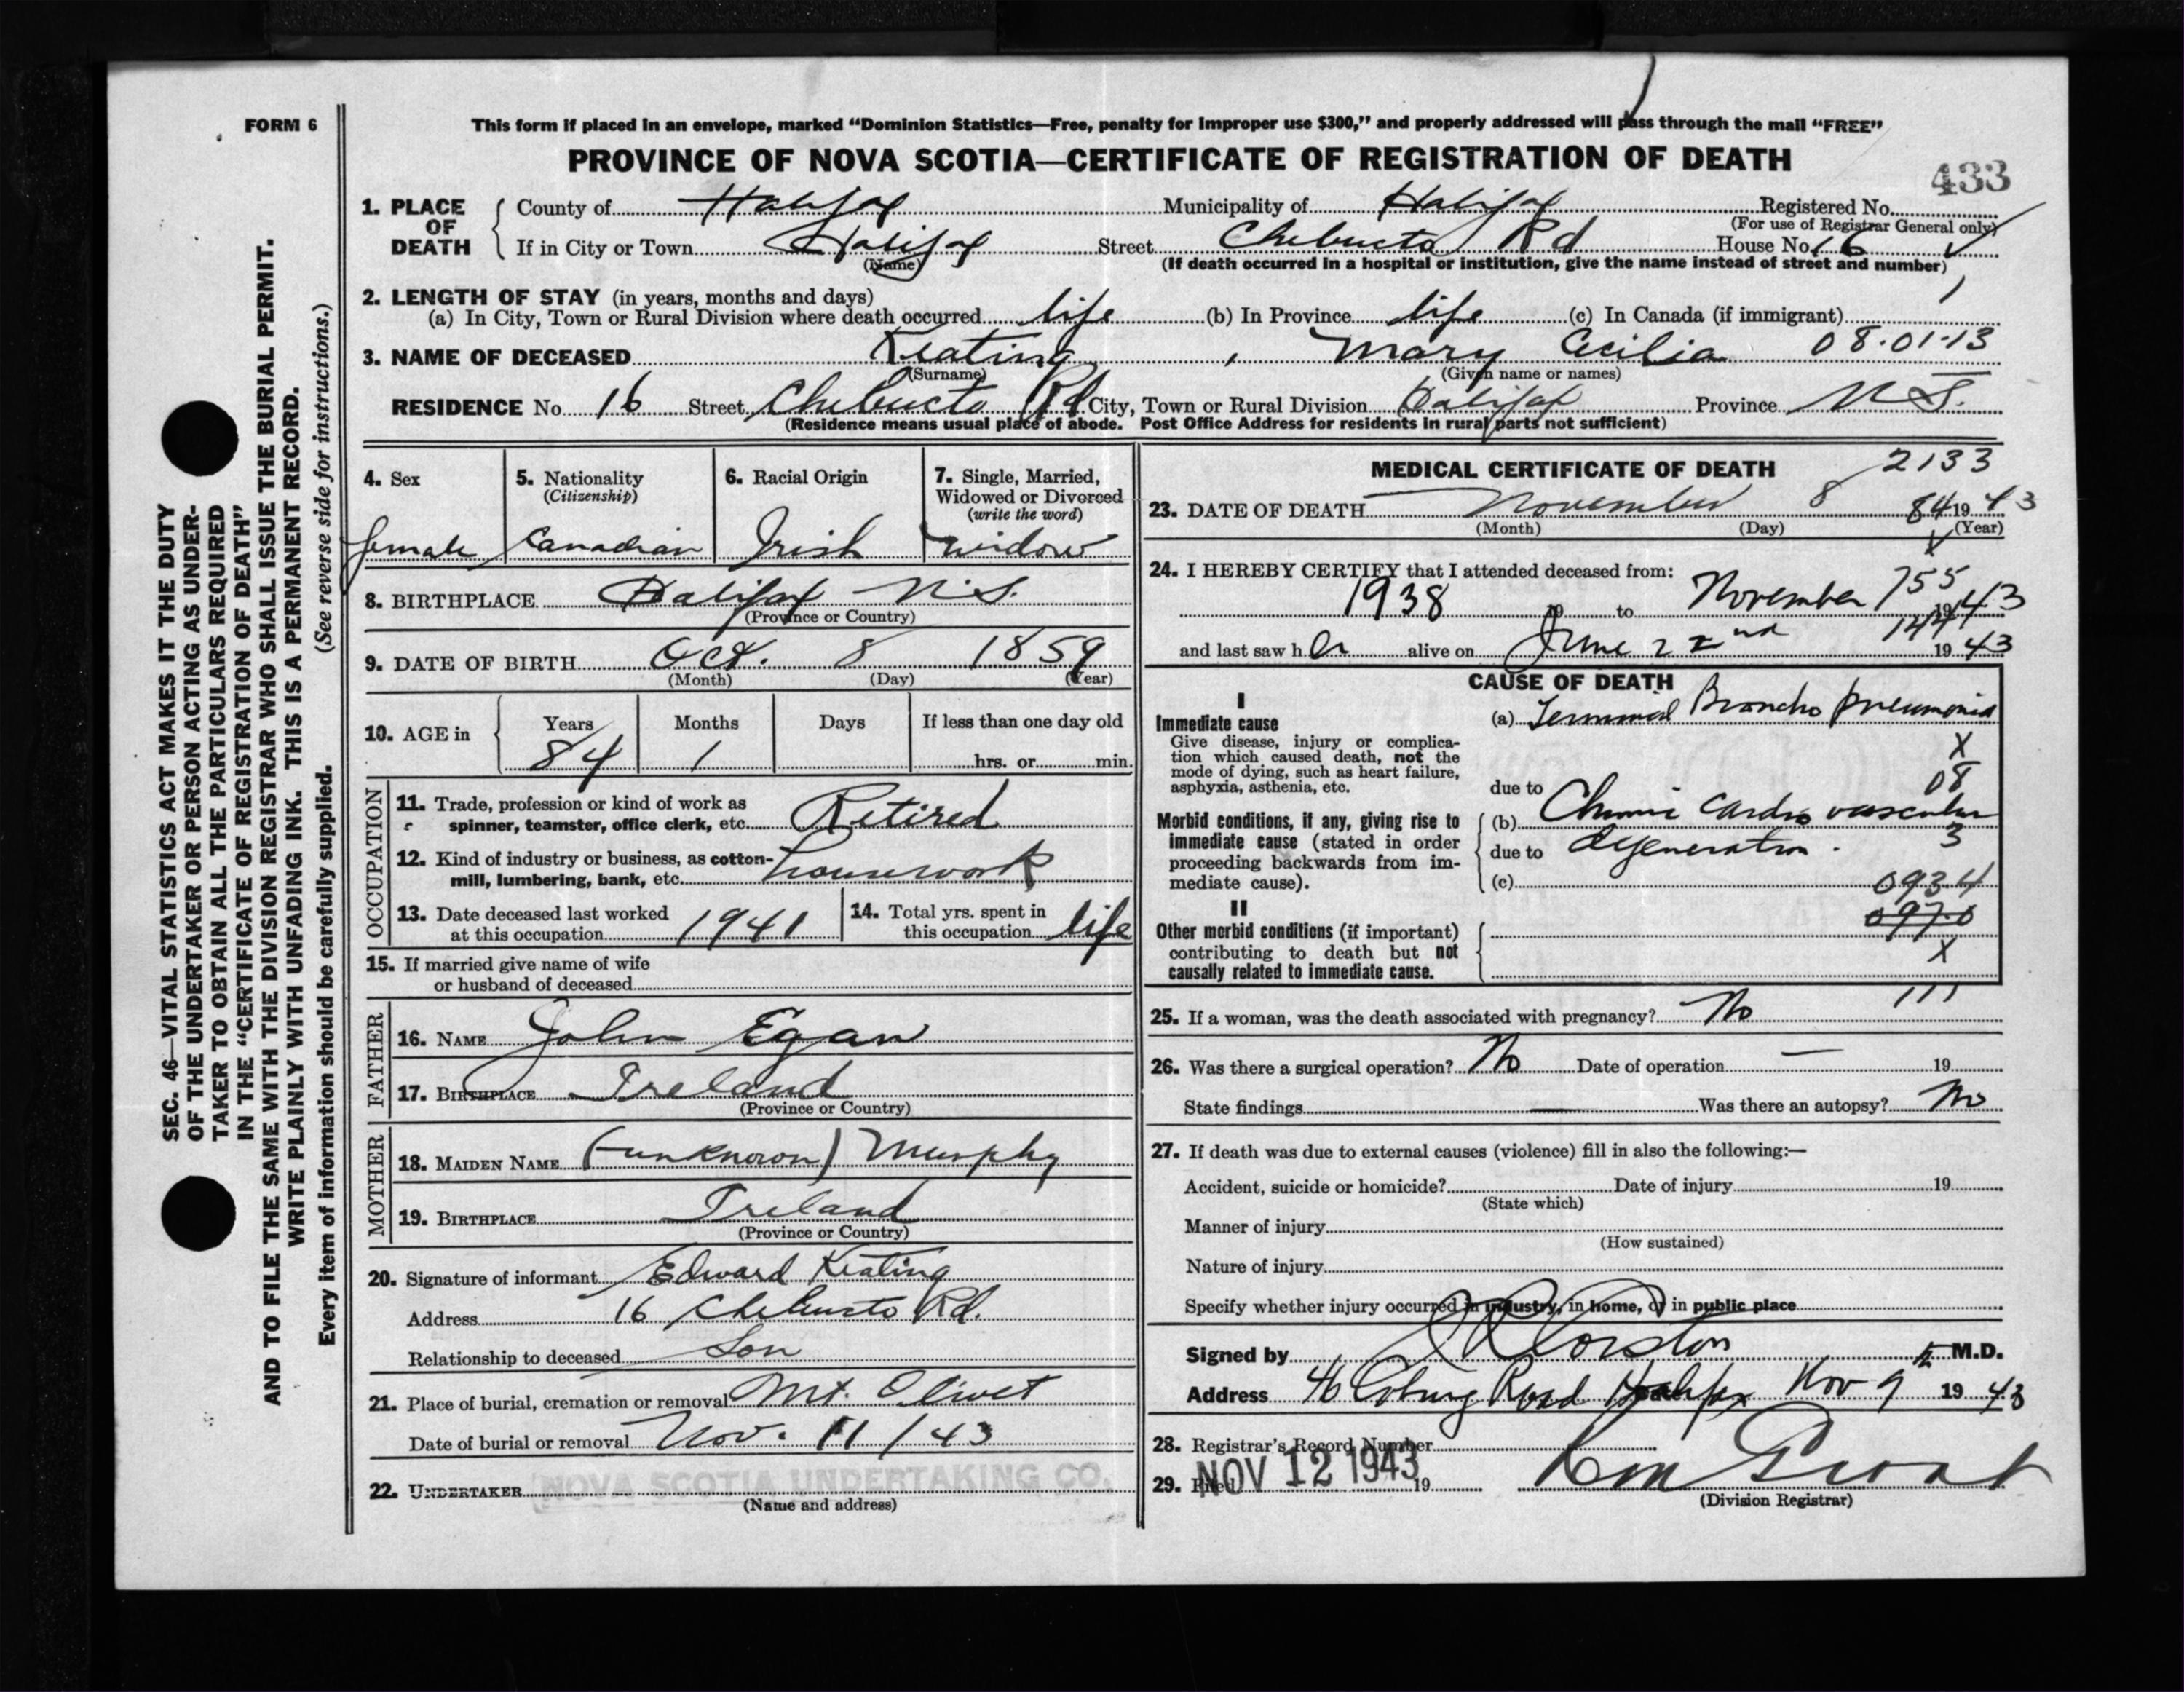 FORM 6
This form if placed in an envelope, marked “Dominion Statistics—Free, penalty for improper use $300,” and properly addressed will pass through the mail “FREE”
PROVINCE OF NOVA SCOTIA—CERTIFICATE OF REGISTRATION OF DEATH
433
1. PLACE OF DEATH
County of Halifax Municipality of Halifax Registered No.
(For use of Registrar General only)
If in City or Town Halifax Street Chebucto Rd House No. 16
(Name) (If death occurred in a hospital or institution, give the name instead of street and number)
2. LENGTH OF STAY (in years, months and days)
(a) In City, Town or Rural Division where death occurred life (b) In Province life (c) In Canada (if immigrant)
3. NAME OF DECEASED Keating, Mary Cecilia 08.01.13
(Surname) (Given name or names)
RESIDENCE No. 16 Street Chebucto Rd City, Town or Rural Division Halifax Province N.S.
(Residence means usual place of abode. Post Office Address for residents in rural parts not sufficient)
4. Sex
female
5. Nationality
(Citizenship)
Canadian
6. Racial Origin
Irish
7. Single, Married,
Widowed or Divorced
(write the word)
widow
8. BIRTHPLACE Halifax N.S.
(Province or Country)
9. DATE OF BIRTH Oct. 8 1859
(Month) (Day) (Year)
10. AGE in
Years Months Days If less than one day old
84 1 hrs. or min.
OCCUPATION
11. Trade, profession or kind of work as
spinner, teamster, office clerk, etc. Retired
12. Kind of industry or business, as cotton-
mill, lumbering, bank, etc. housework
13. Date deceased last worked
at this occupation 1941
14. Total yrs. spent in
this occupation life
15. If married give name of wife
or husband of deceased
FATHER
16. NAME John Egan
17. BIRTHPLACE Ireland
(Province or Country)
MOTHER
18. MAIDEN NAME (unknown) Murphy
19. BIRTHPLACE Ireland
(Province or Country)
20. Signature of informant Edward Keating
Address 16 Chebucto Rd.
Relationship to deceased Son
21. Place of burial, cremation or removal Mt. Olivet
Date of burial or removal Nov. 11/43
22. UNDERTAKER NOVA SCOTIA UNDERTAKING CO.
(Name and address)
MEDICAL CERTIFICATE OF DEATH 2133
23. DATE OF DEATH November 8 84 1943
(Month) (Day) (Year)
24. I HEREBY CERTIFY that I attended deceased from:
1938 19 to November 755 1943
144
and last saw her alive on June 22nd 1943
CAUSE OF DEATH
I
Immediate cause
Give disease, injury or complica-
tion which caused death, not the
mode of dying, such as heart failure,
asphyxia, asthenia, etc.
(a) Terminal Broncho pneumonia
X
08
due to
Morbid conditions, if any, giving rise to
immediate cause (stated in order
proceeding backwards from im-
mediate cause).
(b) Chronic Cardio vascular
due to degeneration. 3
(c) 0934
II
Other morbid conditions (if important)
contributing to death but not
causally related to immediate cause.
0970
X
111
25. If a woman, was the death associated with pregnancy? No
26. Was there a surgical operation? No Date of operation — 19
State findings — Was there an autopsy? No
27. If death was due to external causes (violence) fill in also the following:—
Accident, suicide or homicide? Date of injury 19
(State which)
Manner of injury
(How sustained)
Nature of injury
Specify whether injury occurred in industry, in home, or in public place
Signed by Corston M.D.
Address 46 Coburg Road Halifax Date Nov 9 1943
28. Registrar's Record Number
29. Filed NOV 12 1943 19
(Division Registrar)
SEC. 46—VITAL STATISTICS ACT MAKES IT THE DUTY
OF THE UNDERTAKER OR PERSON ACTING AS UNDER-
TAKER TO OBTAIN ALL THE PARTICULARS REQUIRED
IN THE “CERTIFICATE OF REGISTRATION OF DEATH”
AND TO FILE THE SAME WITH THE DIVISION REGISTRAR WHO SHALL ISSUE THE BURIAL PERMIT.
WRITE PLAINLY WITH UNFADING INK. THIS IS A PERMANENT RECORD.
Every item of information should be carefully supplied. (See reverse side for instructions.)